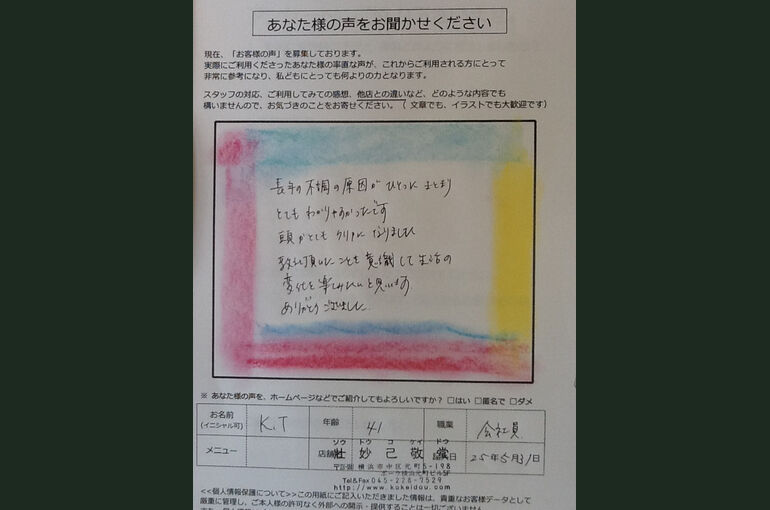 あなた様の声をお聞かせください
現在、「お客様の声」を募集しております。
実際にご利用くださったあなた様の率直な声が、これからご利用される方にとって
非常に参考になり、私どもにとっても何よりの力となります。
スタッフの対応、ご利用してみての感想、他店との違いなど、どのような内容でも
構いませんので、お気づきのことをお寄せください。( 文章でも、イラストでも大歓迎です)
長年の不調の原因がひとつにまとまり
とてもわかりやすかったです
頭がとてもクリアになりました
教え頂いたことを意識して生活の
変化を楽しみたいと思います
ありがとうございました
※ あなた様の声を、ホームページなどでご紹介してもよろしいですか? □はい □匿名で □ダメ
お名前 K.T 年齢 41 職業 会社員
(イニシャル可)
ソウ トウ コ ケイ ドウ
メニュー 店舗 壮 妙 己 敬 堂 日 25年5月31日
横浜市中区元町5-198
Tel&Fax 045-228-7529
http://www.kokeidou.com
<<個人情報保護について>>この用紙にご記入いただきました情報は、貴重なお客様データとして
厳重に管理し、ご本人様の許可なく外部への開示・提供することは一切ございません。